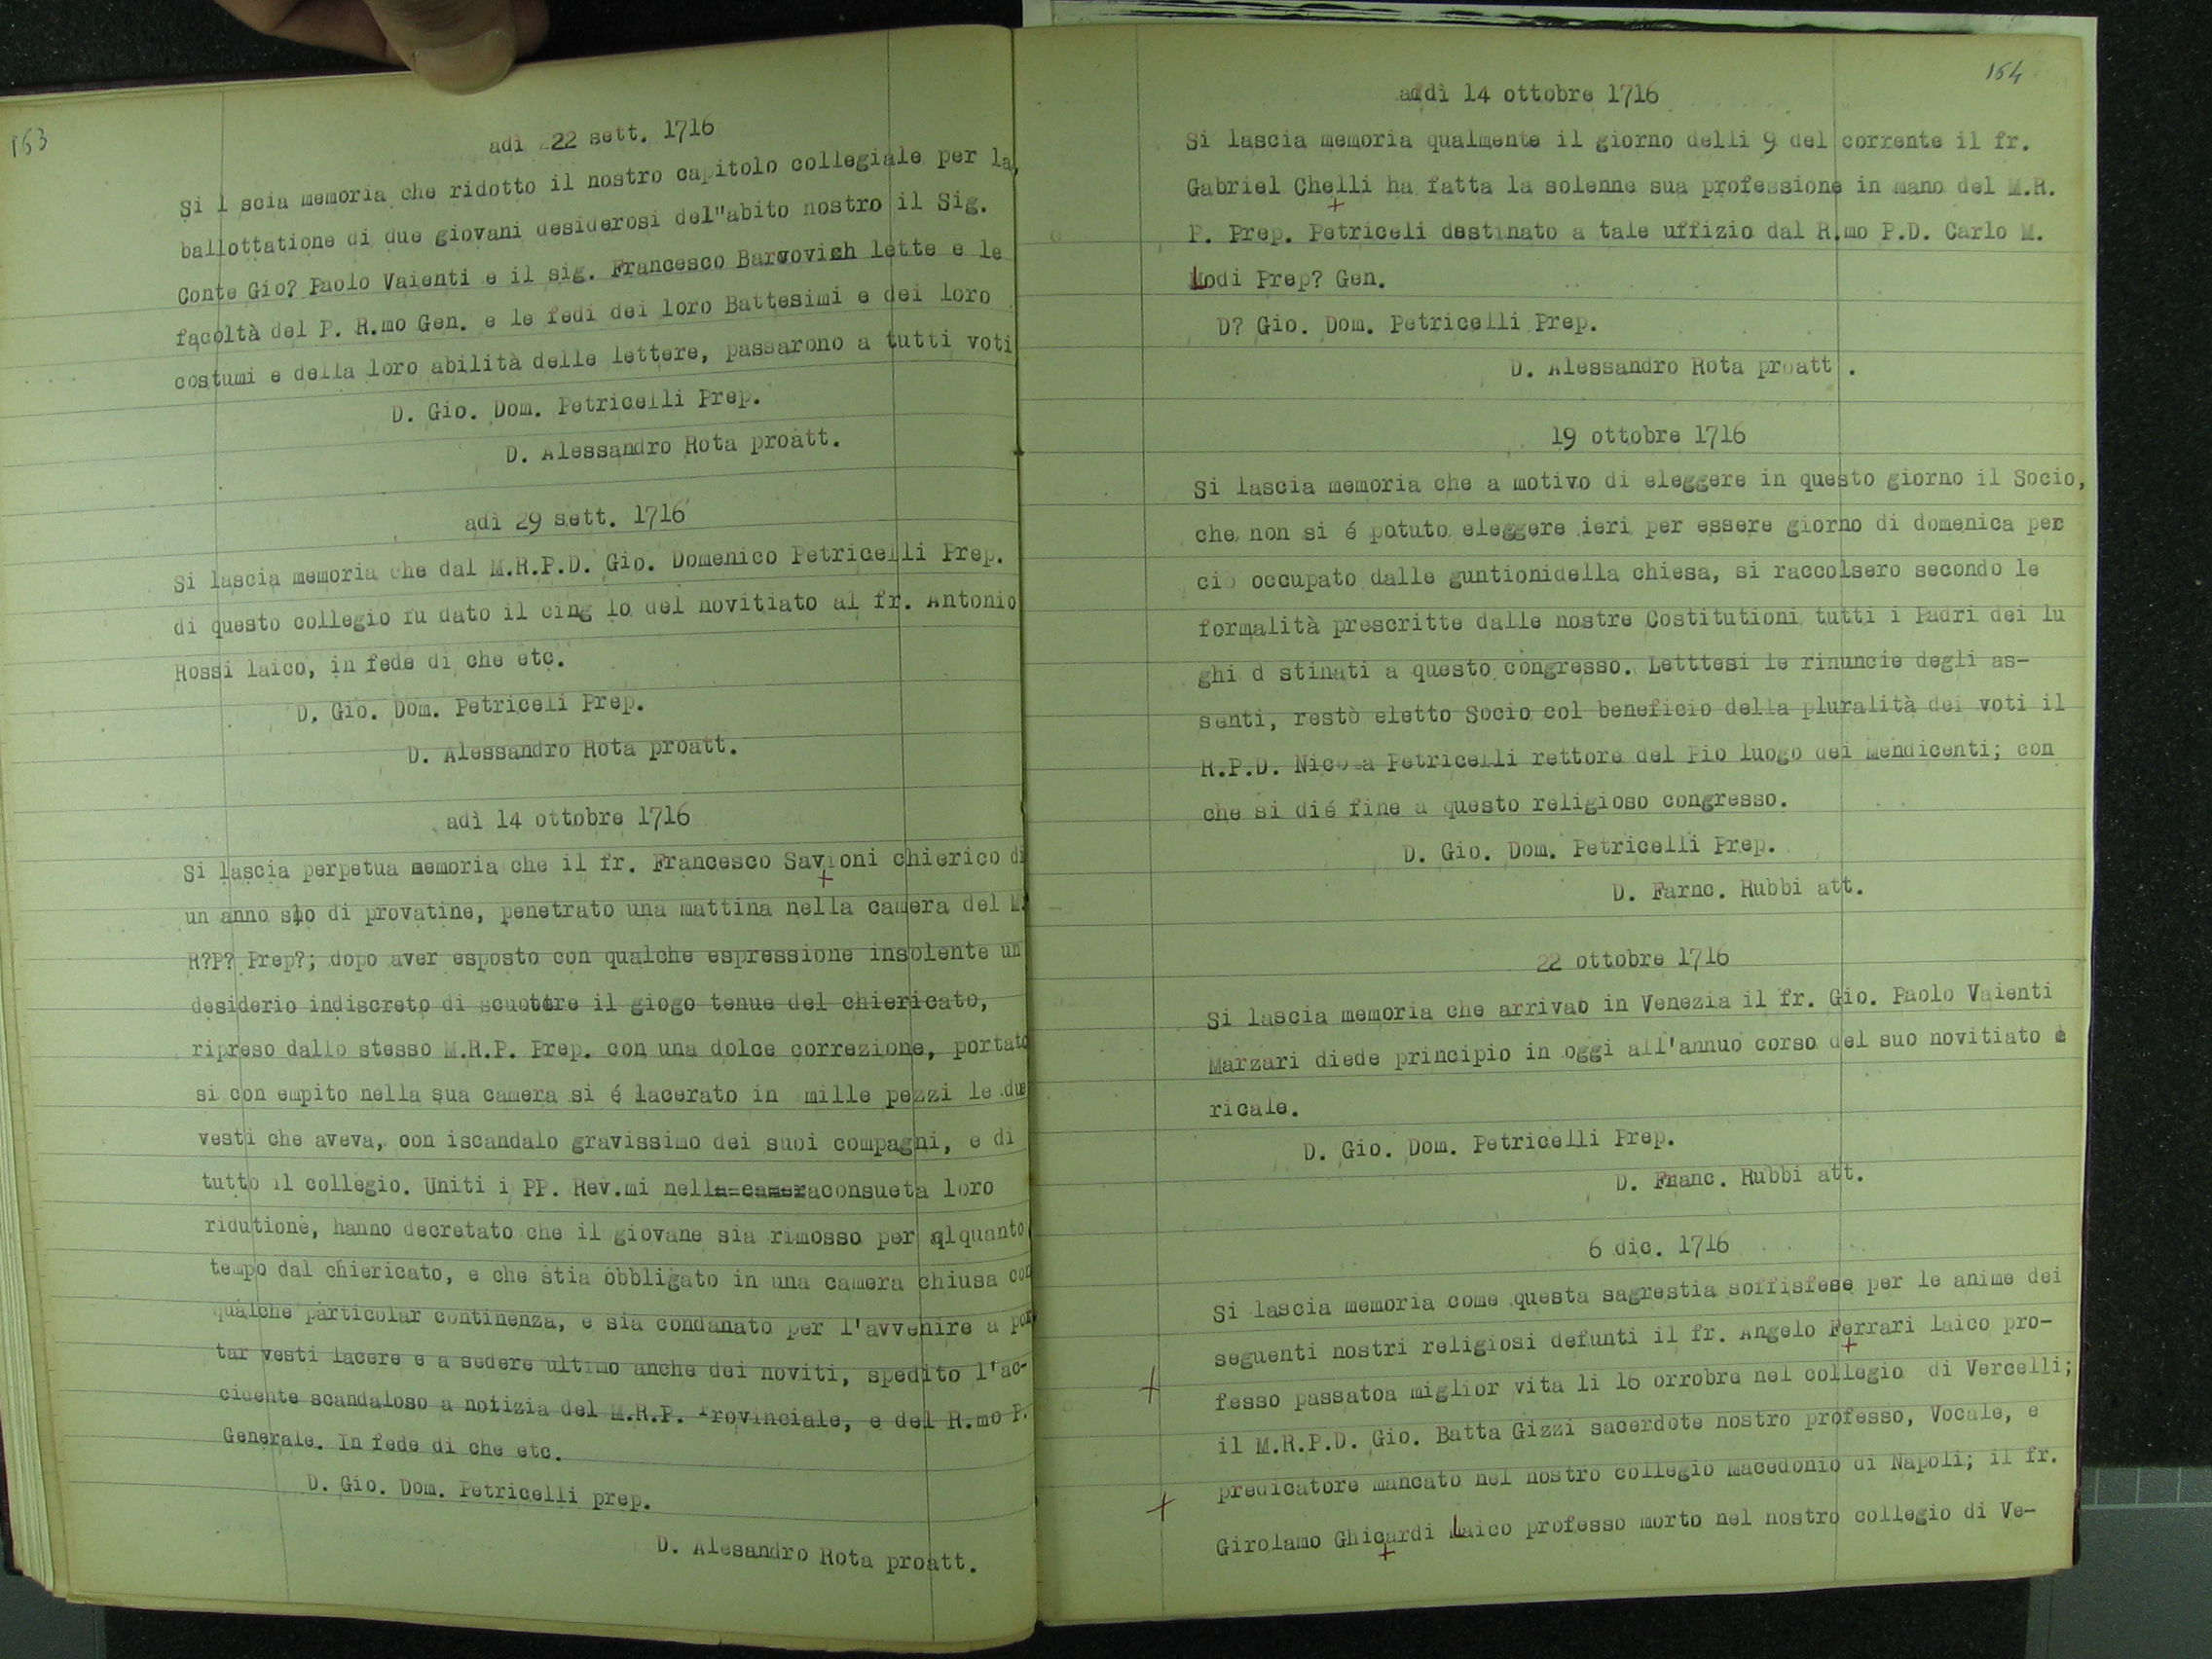 163
adì 22 sett. 1716
Si l scia memoria che ridotto il nostro capitolo collegiale per la
ballottatione di due giovani desiderosi del"abito nostro il Sig.
Conte Gio? Paolo Vaienti e il sig. Francesco lette e le
facoltà del P. R.mo Gen. e le fedi dei loro Battesimi e dei loro
costumi e della loro abilità delle lettere, passarono a tutti voti
D. Gio. Dom. Petricelli Prep.
D. Alessandro Rota proatt.
adì 29 sett. 1716
Si lascia memoria che dal M.R.P.D. Gio. Domenico Petricelli Prep.
di questo collegio fu dato il cing lo del novitiato al fr. Antonio
Rossi laico, in fede di che etc.
D. Gio. Dom. Petriceli Prep.
D. Alessandro Rota proatt.
adì 14 ottobre 1716
Si lascia perpetua memoria che il fr. Francesco Savioni chierico di
un anno slo di provatine, penetrato una mattina nella camera del M.
R?P? Prep?; dopo aver esposto con qualche espressione insolente un
desiderio indiscreto di scuotere il giogo tenue del chiericato,
ripreso dallo stesso M.R.P. Prep. con una dolce correzione, portato
si con empito nella sua camera si é lacerato in mille pezzi le due
vesti che aveva, con iscandalo gravissimo dei suoi compagni, e di
tutto il collegio. Uniti i PP. Rev.mi nella cameraconsueta loro
ridutione, hanno decretato che il giovane sia rimosso per alquanto
tempo dal chiericato, e che stia obbligato in una camera chiusa con
qualche particolar continenza, e sia condanato per l'avvenire a por
tar vesti lacere e a sedere ultimo anche dei noviti, spedito l'ac-
cidente scandaloso a notizia del M.R.P. Provinciale, e del R.mo P.
Generale. In fede di che etc.
D. Gio. Dom. Petricelli prep.
D. Alesandro Rota proatt.
164
addì 14 ottobre 1716
Si lascia memoria qualmente il giorno delli 9 del corrente il fr.
Gabriel Chelli ha fatta la solenne sua professione in mano del M.R.
P. Prep. Petriceli destinato a tale uffizio dal R.mo P.D. Carlo M.
Lodi Prep? Gen.
D? Gio. Dom. Petricelli Prep.
D. Alessandro Rota proatt .
19 ottobre 1716
Si lascia memoria che a motivo di eleggere in questo giorno il Socio,
che non si é potuto eleggere ieri per essere giorno di domenica per
ciò occupato dalle guntionidella chiesa, si raccolsero secondo le
formalità prescritte dalle nostre Costitutioni tutti i Padri dei lu
ghi d stinati a questo congresso. Letttesi le rinuncie degli as-
senti, restò eletto Socio col beneficio della pluralità dei voti il
R.P.D. Nicola Petricelli rettore del Pio luogo dei Mendicenti; con
che si dié fine a questo religioso congresso.
D. Gio. Dom. Petricelli Prep.
D. Farnc. Rubbi att.
22 ottobre 1716
Si lascia memoria che arrivao in Venezia il fr. Gio. Paolo Vaienti
Marzari diede principio in oggi all'annuo corso del suo novitiato c
ricale.
D. Gio. Dom. Petricelli Prep.
D. Franc. Rubbi att.
6 dic. 1716
Si lascia memoria come questa sagrestia soffisfese per le anime dei
seguenti nostri religiosi defunti il fr. Angelo Ferrari laico pro-
fesso passatoa miglior vita li 16 orrobre nel collegio di Vercelli;
il M.R.P.D. Gio. Batta Gizzi sacerdote nostro professo, Vocale, e
predicatore mancato nel nostro collegio Macedonio di Napoli; il fr.
Girolamo Ghicardi Laico professo morto nel nostro collegio di Ve-